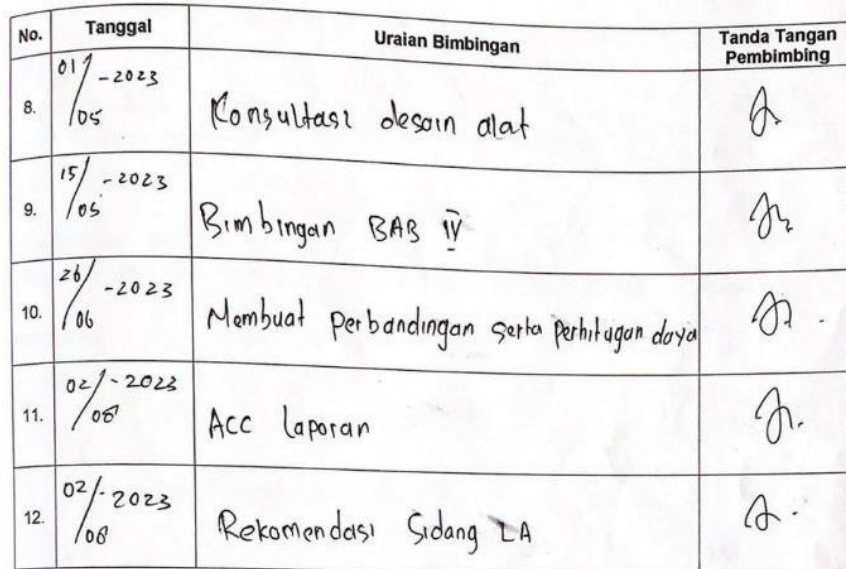 No. Tanggal Uraian Bimbingan Tanda Tangan
Pembimbing
8. 01/05-2023 Konsultasi desain alat
9. 15/05-2023 Bimbingan BAB IV
10. 26/06-2023 Membuat Perbandingan serta Perhitugan daya
11. 02/08-2023 ACC laporan
12. 02/08-2023 Rekomendasi Sidang LA